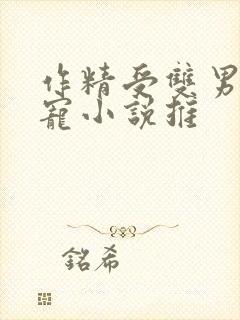 作精受雙男
寵小說推
銘希